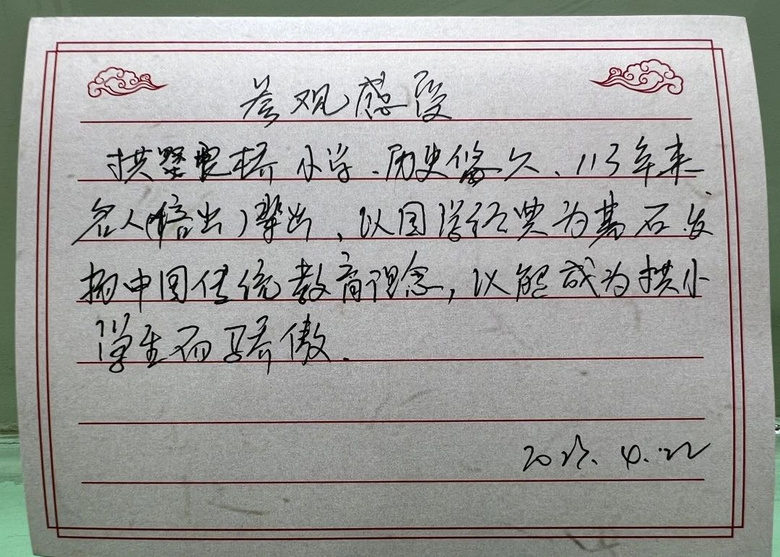 参观感受
拱墅里桥小学、历史悠久、113年来
名人(倍出)辈出，以国学经典为基石发
扬中国传统教育理念，以能成为拱小
学生而骄傲.
4.22